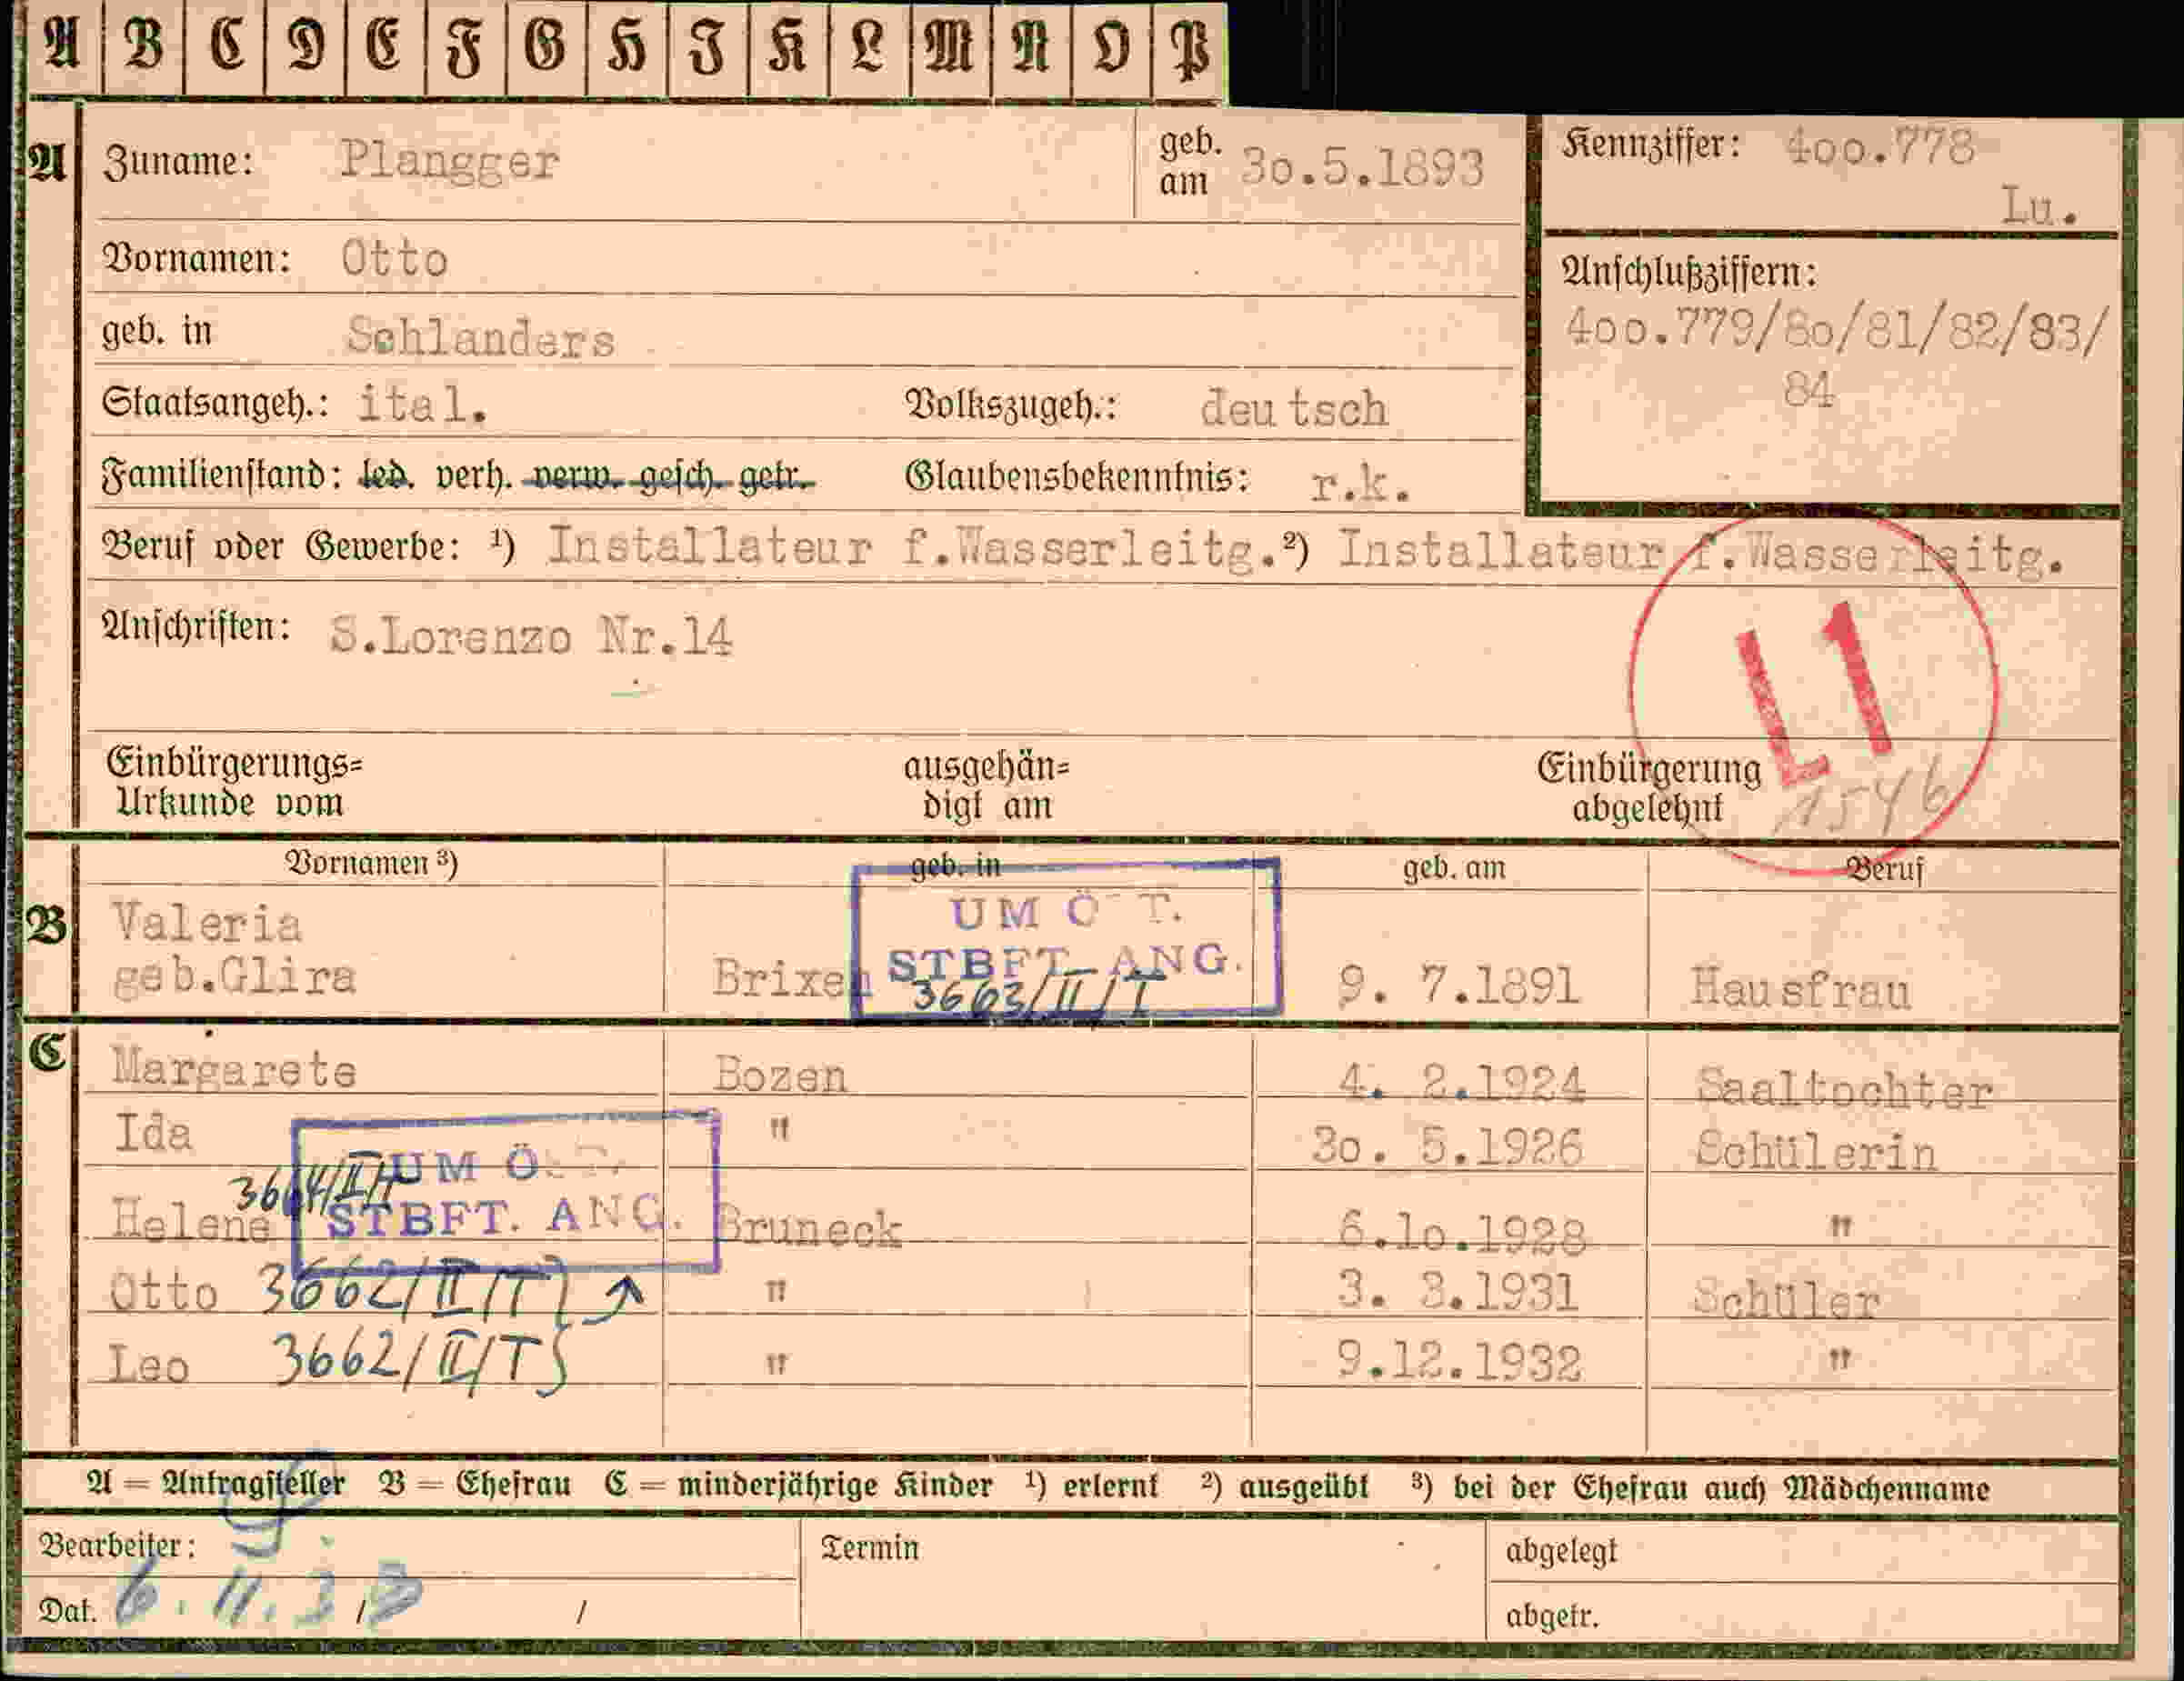 A B C D E F G H J K L M N O P
A Zuname: Plangger geb. am 30.5.1893
Kennziffer: 400.778
Lu.
Vornamen: Otto
Anschlußziffern:
400.779/80/81/82/83/
84
geb. in Schlanders
Staatsangeh.: ital. Volkszugeh.: deutsch
Familienstand: led. verh. verw. gesch. getr. Glaubensbekenntnis: r.k.
Beruf oder Gewerbe: ¹) Installateur f.Wasserleitg. ²) Installateur f.Wasserleitg.
Anschriften: S.Lorenzo Nr.14
L1
Einbürgerungs= ausgehän= Einbürgerung
Urkunde vom digt am abgelehnt 1546
Vornamen ³) geb. in geb. am Beruf
UM Ö T.
B Valeria
STBFT. ANG.
geb.Glira Brixen 3663/II/T 9. 7.1891 Hausfrau
C Margarete Bozen 4. 2.1924 Saaltochter
Ida " 30. 5.1926 Schülerin
UM Ö
STBFT. ANG.
Helene Bruneck 6.10.1928 "
Otto 3662/II/T " 3. 3.1931 Schüler
Leo 3662/II/T " 9.12.1932 "
A = Antragsteller B = Ehefrau C = minderjährige Kinder ¹) erlernt ²) ausgeübt ³) bei der Ehefrau auch Mädchenname
Bearbeiter: Termin abgelegt
Dat. 6. 11. / / abgetr.